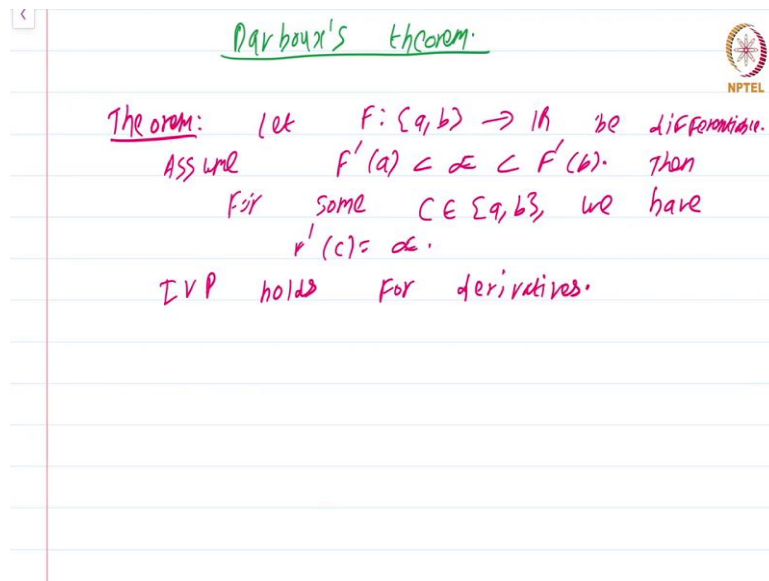 Darboux's theorem.
NPTEL
Theorem: let F: [a,b] → ℝ be differentiable.
Assume F'(a) < α < F'(b). Then
For some c ∈ [a,b], we have
F'(c) = α.
IVP holds for derivatives.